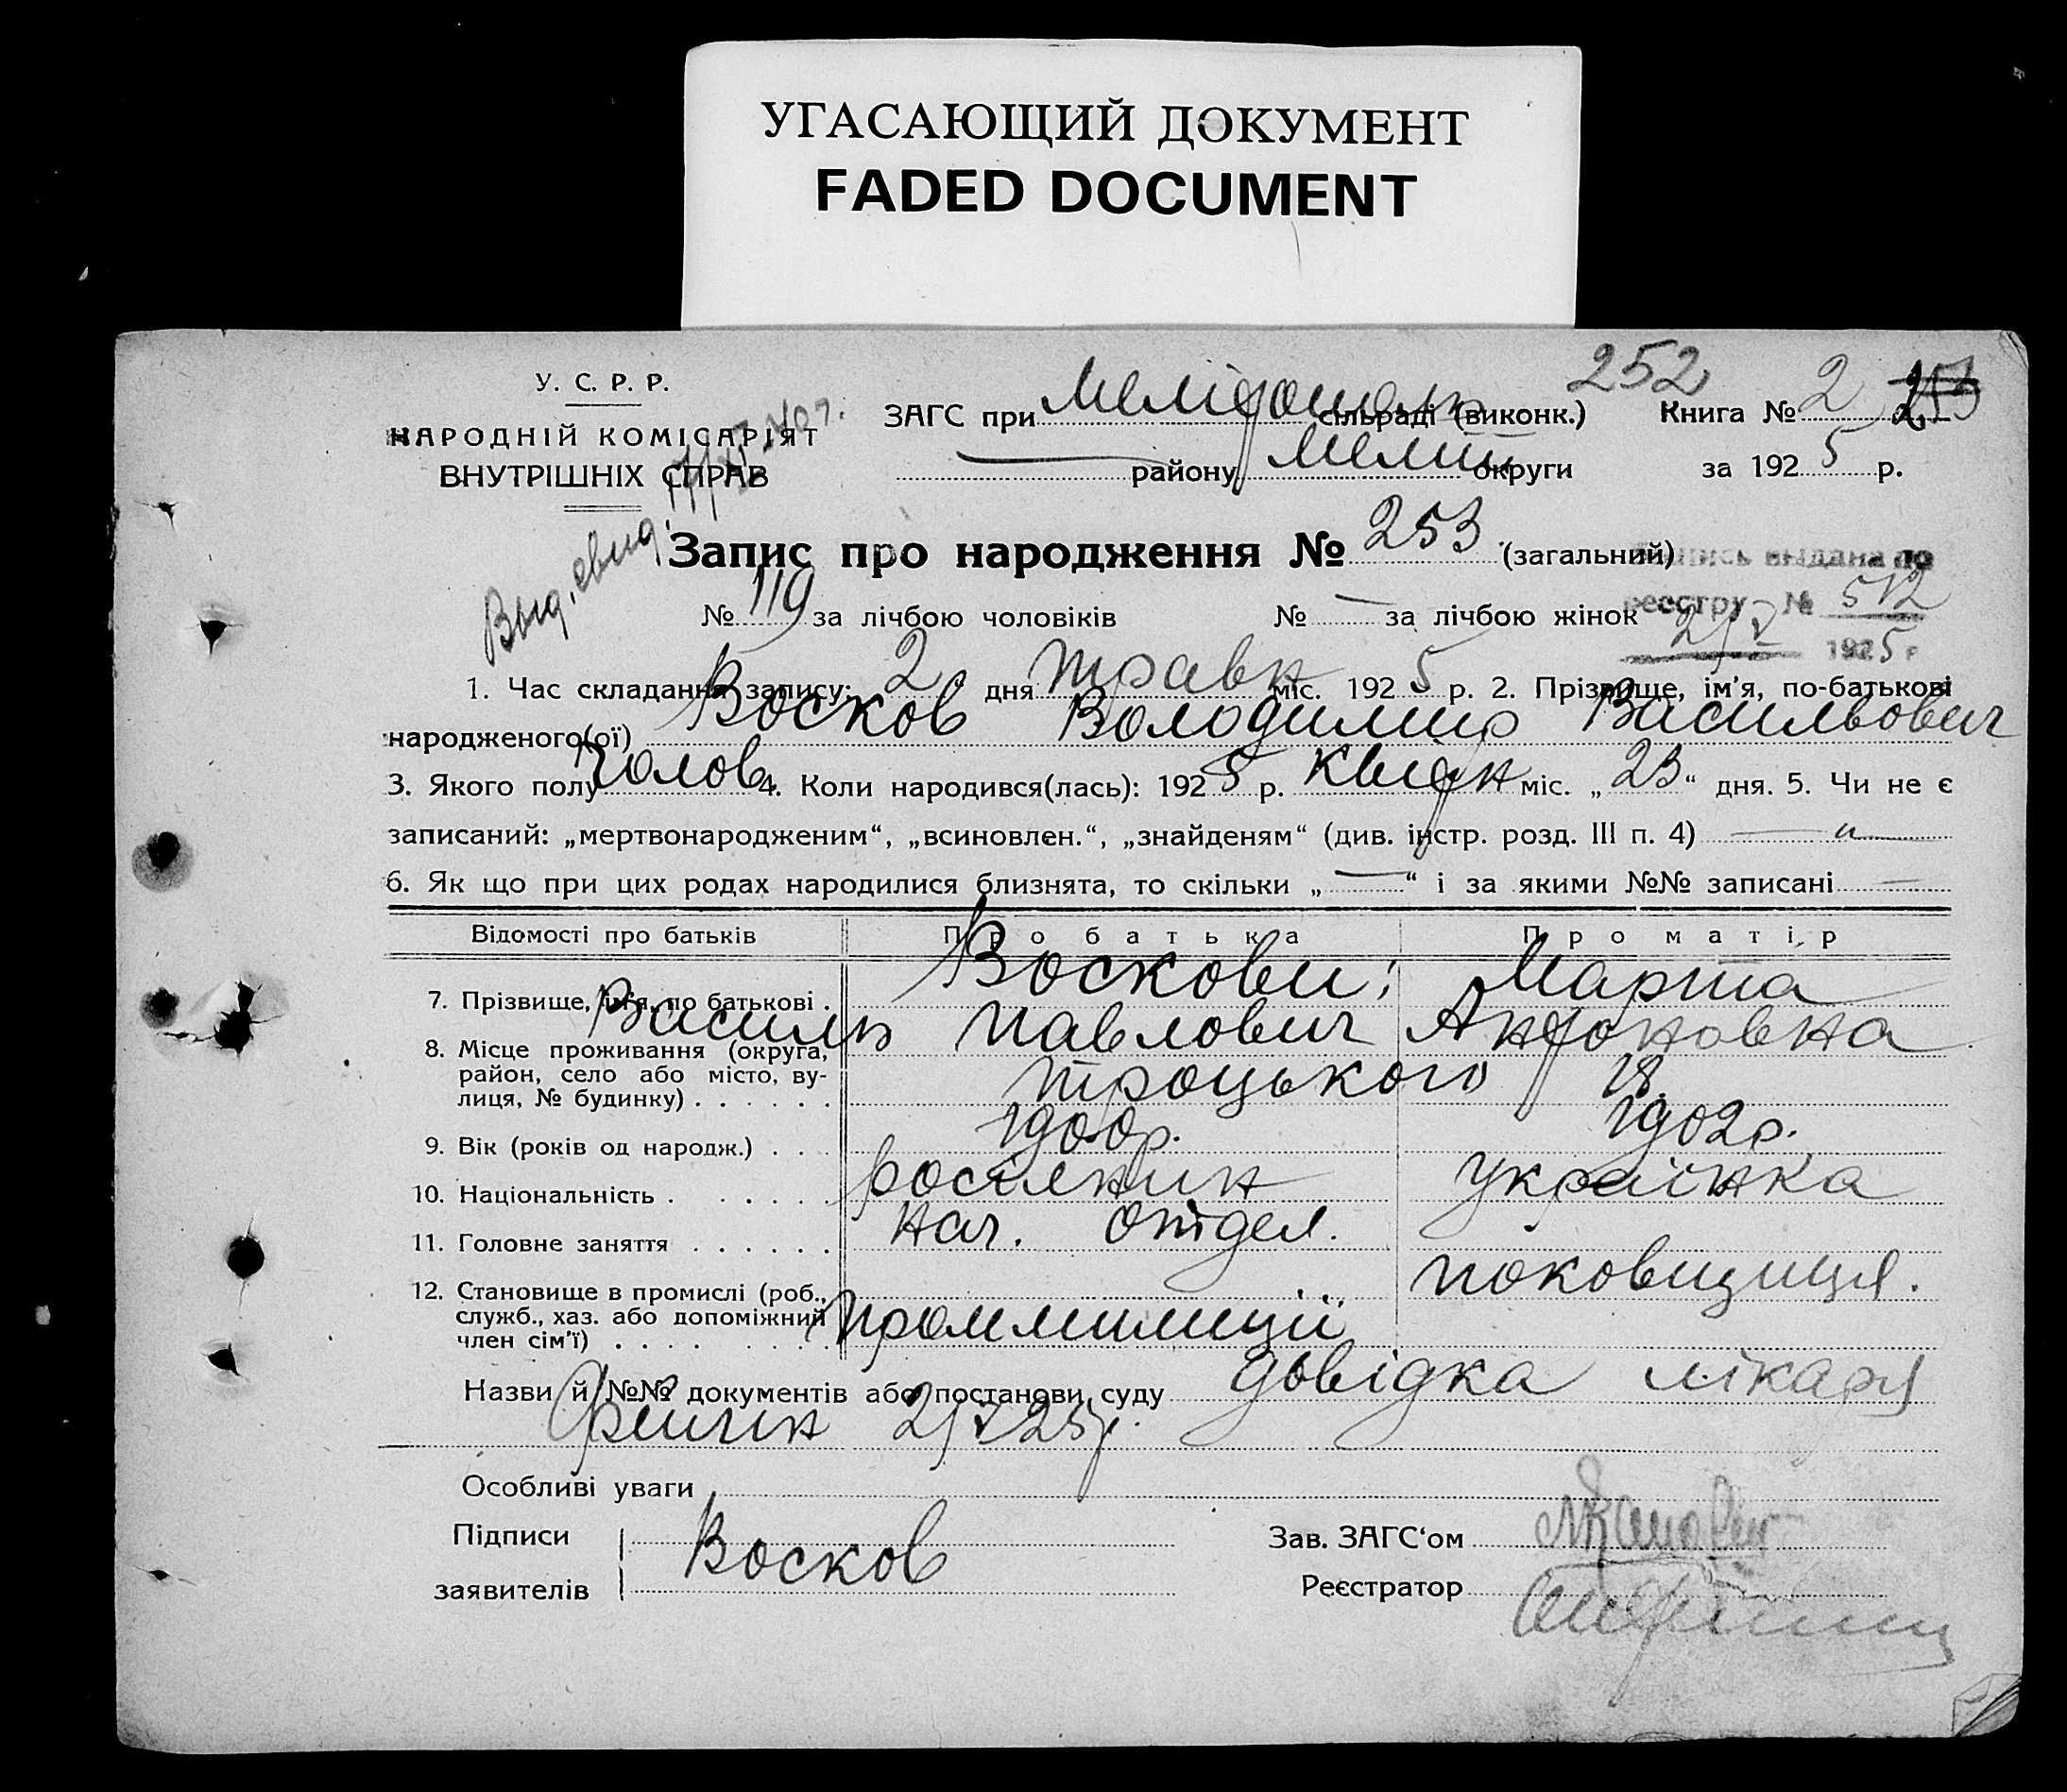 УГАСАЮЩИЙ ДОКУМЕНТ
FADED DOCUMENT
252
У. С. Р. Р.
НАРОДНІЙ КОМІСАРІЯТ
ВНУТРІШНІХ СПРАВ
ЗАГС при Мелітополь сільраді (виконк.) Книга № 2
— району Меліт округи за 1925 р.
Выд. свид.
Запис про народження № 253 (загальний)
№ 119 за лічбою чоловіків № — за лічбою жінок
выдана по
реестру № 512
2/V 1925 г
1. Час складання запису: 2 дня травн міс. 1925 р. 2. Прізвище, ім'я, по-батькові
народженого(ої) Восков Володимир Васильович
3. Якого полу чолов 4. Коли народився(лась): 1925 р. квітн міс. „23“ дня. 5. Чи не є
записаний: „мертвонародженим“, „всиновлен.“, „знайденям“ (див. інстр. розд. III п. 4) — „ —
6. Як що при цих родах народилися близнята, то скільки „—“ і за якими №№ записані —
Відомості про батьків Про батька Про матір
7. Прізвище, ім'я, по батькові . Воскови: Марта
Василь Павлович Антоновна
8. Місце проживання (округа, район, село або місто, вулиця, № будинку) . . . . . . Троцького 18.
9. Вік (років од народж.) . . . 1900р. 1902р.
10. Національність . . . . . . росіянин українка
11. Головне заняття . . . . . . нач. отдел.
12. Становище в промислі (роб., служб., хаз. або допоміжний член сім'ї) . . . . . . . . проммилиціі поковщиця.
Назви й №№ документів або постанови суду довідка лікаря
2/V 25р.
Особливі уваги
Підписи
заявителів
Восков
Зав. ЗАГС‘ом
Реєстратор